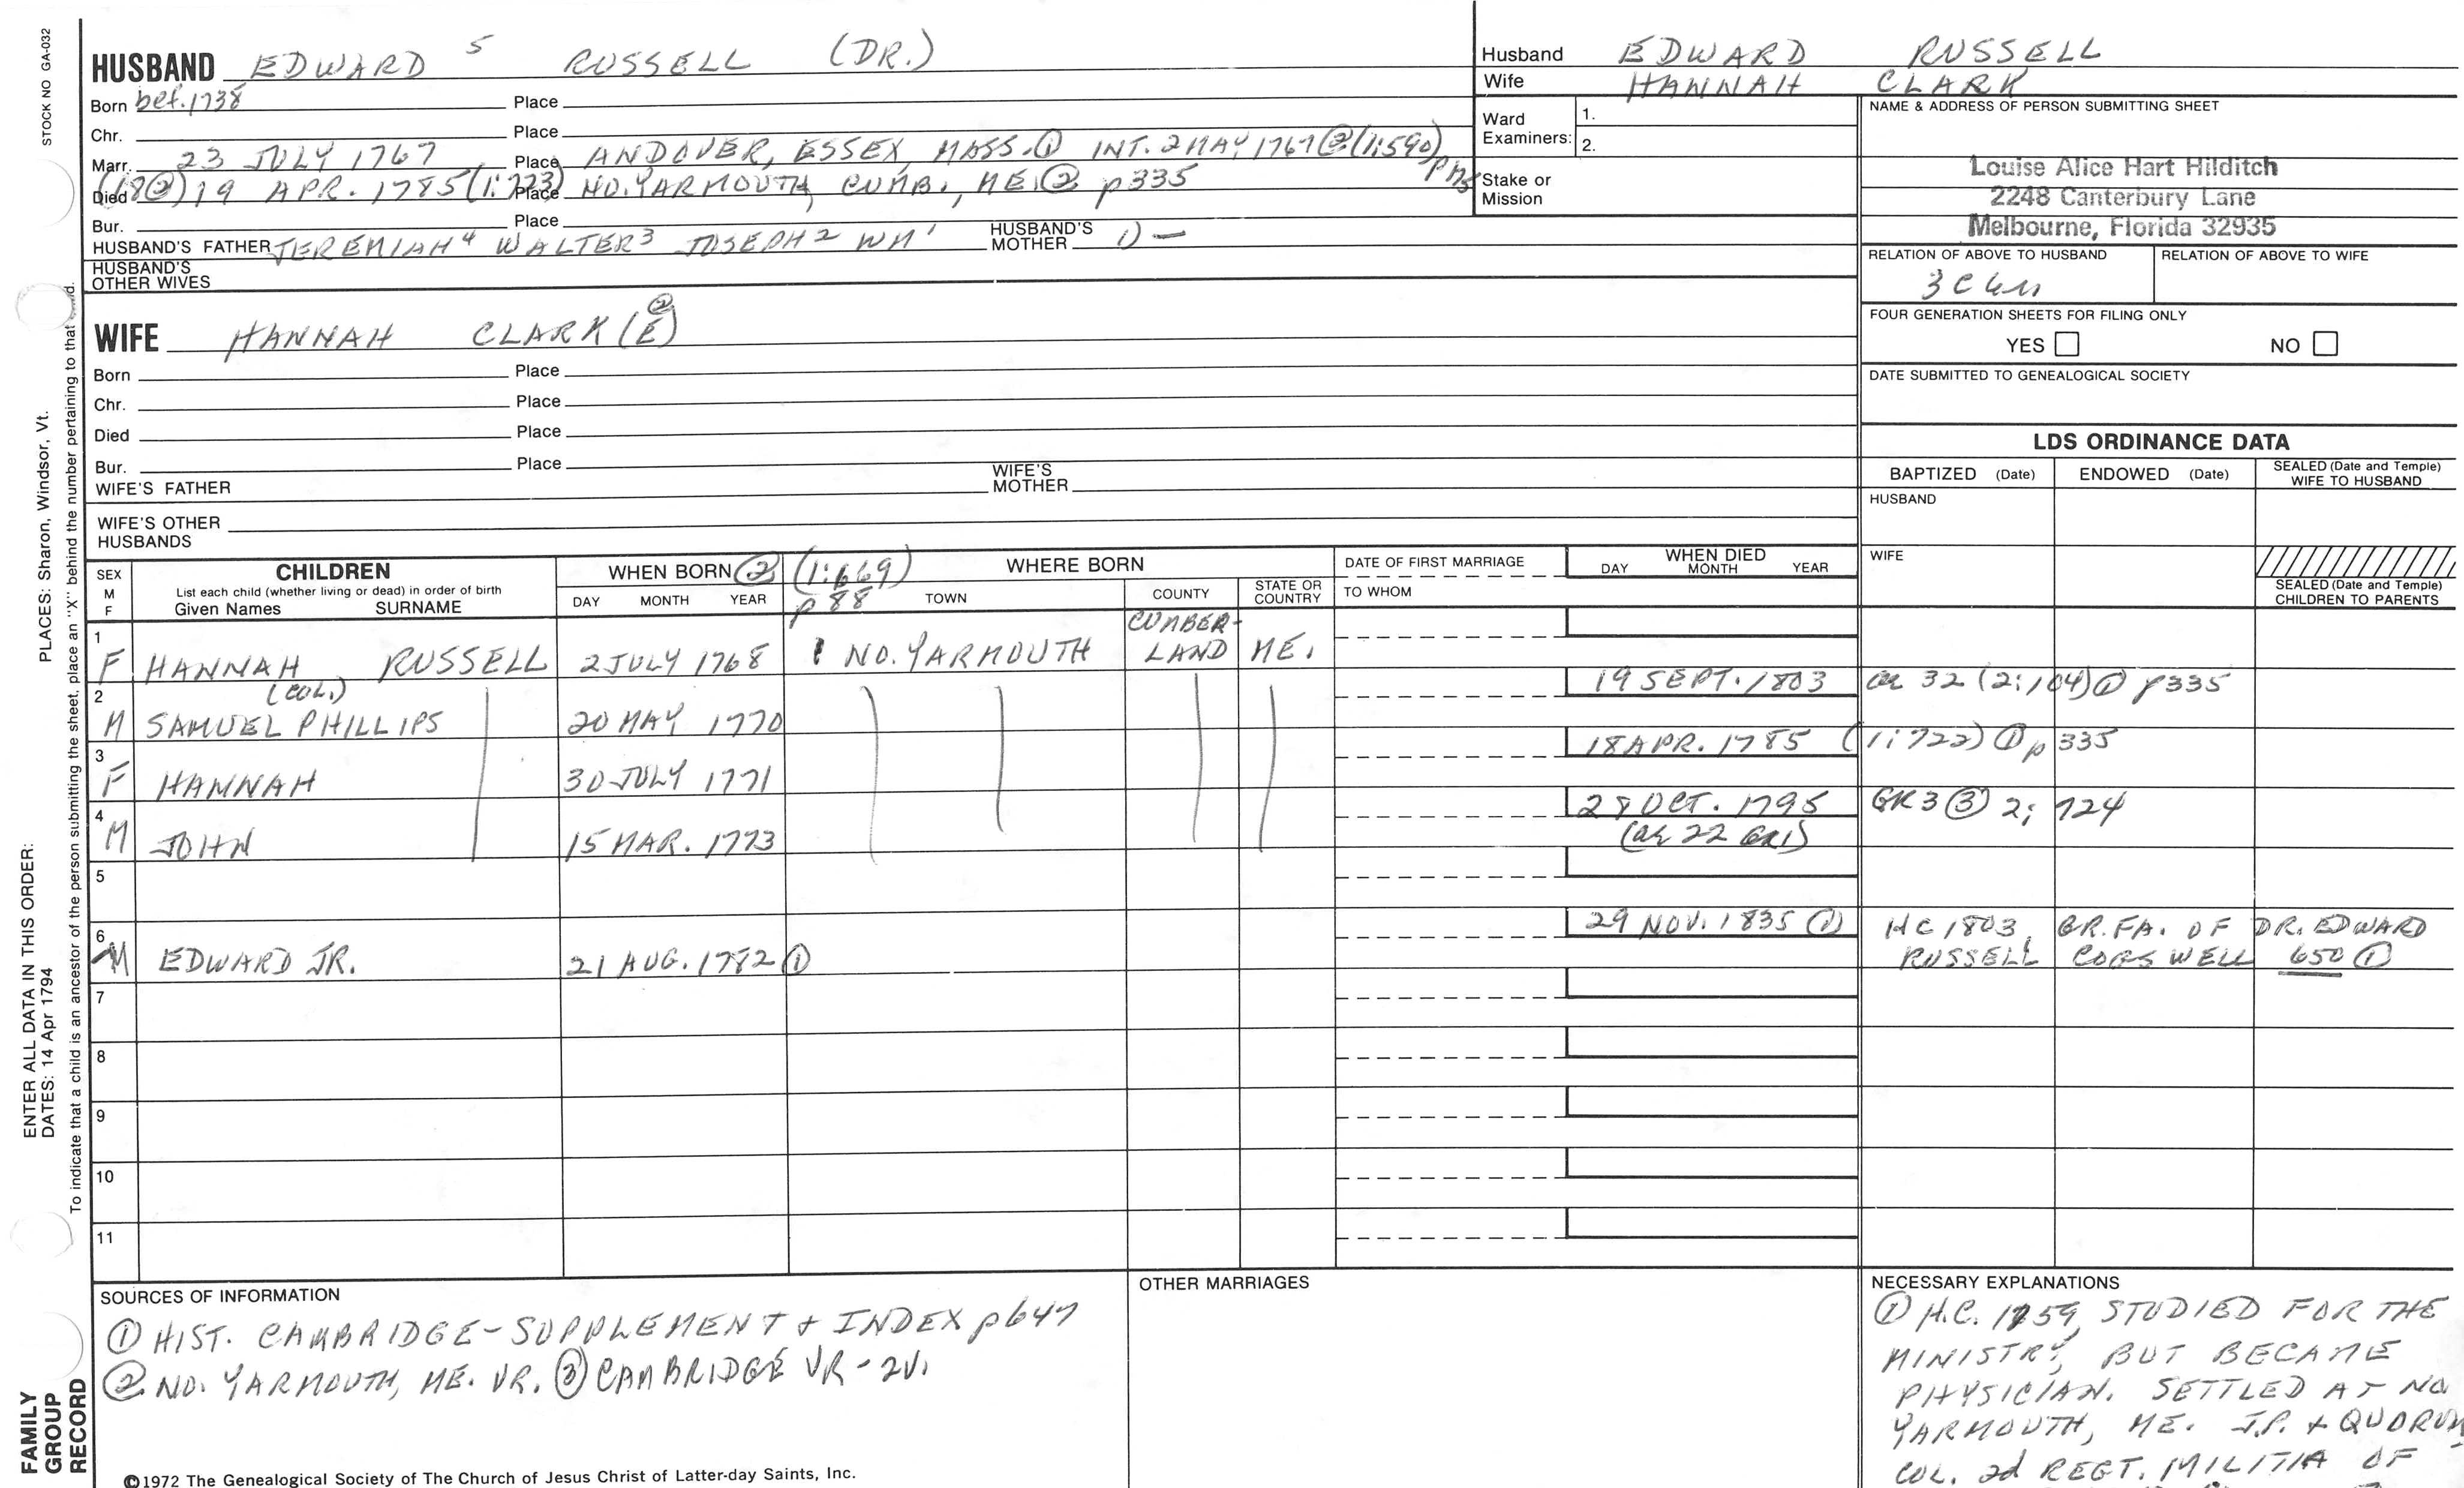 STOCK NO GA-032
HUSBAND EDWARD 5 RUSSELL (DR.)
Born bef. 1738 Place
Chr. Place
Marr. 23 JULY 1767 Place ANDOVER, ESSEX, MASS. ① INT. 2 MAY 1767 ② (1:590)
Died (18②) 19 APR. 1785 (1:723) Place NO. YARMOUTH, CUMB., ME. ② p335
Bur. Place
HUSBAND'S FATHER JEREMIAH 4 WALTER 3 JOSEPH 2 WM 1 HUSBAND'S MOTHER 1) —
HUSBAND'S OTHER WIVES
Husband EDWARD RUSSELL
Wife HANNAH CLARK
Ward Examiners: 1.
2.
Stake or Mission
NAME & ADDRESS OF PERSON SUBMITTING SHEET
Louise Alice Hart Hilditch
2248 Canterbury Lane
Melbourne, Florida 32935
RELATION OF ABOVE TO HUSBAND RELATION OF ABOVE TO WIFE
FOUR GENERATION SHEETS FOR FILING ONLY
YES NO
DATE SUBMITTED TO GENEALOGICAL SOCIETY
WIFE HANNAH CLARK (E②)
Born Place
Chr. Place
Died Place
Bur. Place
WIFE'S FATHER WIFE'S MOTHER
WIFE'S OTHER HUSBANDS
LDS ORDINANCE DATA
BAPTIZED (Date) ENDOWED (Date) SEALED (Date and Temple) WIFE TO HUSBAND
HUSBAND
WIFE
SEALED (Date and Temple) CHILDREN TO PARENTS
SEX M F
CHILDREN
List each child (whether living or dead) in order of birth
Given Names SURNAME
WHEN BORN ② (1:669) p 88
DAY MONTH YEAR
WHERE BORN
TOWN COUNTY STATE OR COUNTRY
DATE OF FIRST MARRIAGE
TO WHOM
WHEN DIED
DAY MONTH YEAR
1 F HANNAH RUSSELL 2 JULY 1768 NO. YARMOUTH CUMBERLAND ME.
2 M (COL.) SAMUEL PHILLIPS 20 MAY 1770 19 SEPT. 1803 ae 32 (2:104) ① p335
3 F HANNAH 30 JULY 1771 18 APR. 1785 (1:722) ① p 335
4 M JOHN 15 MAR. 1773 28 OCT. 1795 GR3 ③ 2: 724
(ae 22 GR1)
5
6 M EDWARD JR. 21 AUG. 1782 ① 29 NOV. 1835 ① HC 1803. GR. FA. OF DR. EDWARD
RUSSELL COGSWELL 650 ①
7
8
9
10
11
SOURCES OF INFORMATION
① HIST. CAMBRIDGE-SUPPLEMENT + INDEX p647
② NO. YARMOUTH, ME. VR. ③ CAMBRIDGE VR - 2V.
OTHER MARRIAGES
NECESSARY EXPLANATIONS
① H.C. 1759, STUDIED FOR THE
MINISTRY, BUT BECAME
PHYSICIAN. SETTLED AT NO
YARMOUTH, ME. J.P. + QUORUM
COL. 2d REGT. MILITIA OF
©1972 The Genealogical Society of The Church of Jesus Christ of Latter-day Saints, Inc.
FAMILY GROUP RECORD
ENTER ALL DATA IN THIS ORDER:
DATES: 14 Apr 1794
PLACES: Sharon, Windsor, Vt.
To indicate that a child is an ancestor of the person submitting the sheet, place an "X" behind the number pertaining to that child.